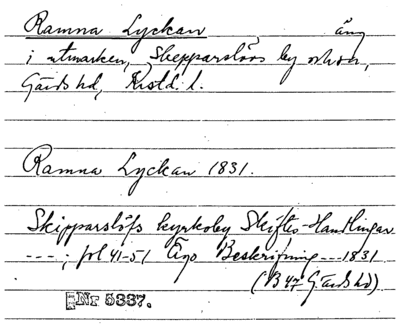 Ramna Lyckan, äng
i utmarken, Skepparslövs by och sn,
Gärds hd, Krstd. l.
Ramna Lyckan 1831.
Skipparslöfs kyrkoby Skiftes-Handlingar
---; fol 41-51 Ägo Beskrifning --- 1831
(B 47 Gärds hd)
Nr 5337.